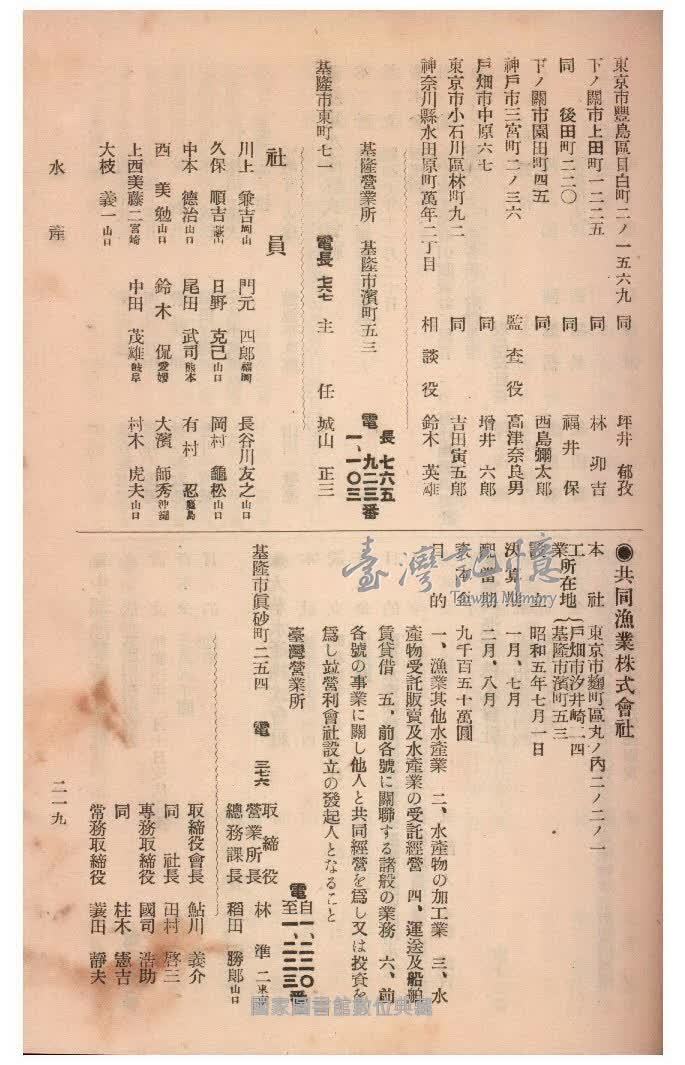 東京市豐島區目白町二ノ一五六九 同 坪井 郁孜
下ノ關市上田町一二二五 同 林 卯吉
同 後田町二二〇 同 福井 保
下ノ關市園田町四五 同 西島彌太郎
神戶市三宮町二ノ三六 監査役 高津奈良男
戶畑市中原六七 同 增井 六郎
東京市小石川區林町九二 同 吉田寅五郎
神奈川縣水田原町萬年二丁目 相談役 鈴木 英雄
基隆營業所 基隆市濱町五三 電 長 七六五 九二三番 一、一〇三
基隆市東町七一 電長 七六七 主任 城山 正三
社員
川上 兼吉岡山 門元 四郎福岡 長谷川友之山口
久保 順吉歙山 日野 克己山口 岡村 龜松山口
中本 德治山口 尾田 武司熊本 有村 忍鹿島
西 美勉山口 鈴木 侃愛媛 大濱 師秀沖繩
上西美藤二宮崎 中田 茂雄岐阜 村木 虎夫山口
大枝 義一山口
水產
●共同漁業株式會社
本社 東京市麴町區丸ノ內二ノ二ノ一
工業所在地 戶畑市汐井崎一四
基隆市濱町五三
立 昭和五年七月一日
決算期 一月、七月
配當期 二月、八月
金 九千百五十萬圓
目的 一、漁業其他水產業 二、水產物の加工業 三、水
產物受託販賣及水產業の受託經營 四、運送及船舶
賃貸借 五、前各號に關聯する諸般の業務 六、前
各號の事業に關し他人と共同經營を爲し又は投資を
爲し竝營利會社設立の發起人となること
臺灣營業所 電 自一、二二〇 至一、二二三番
基隆市眞砂町二五四 電 三七六 取締役營業所長 林 準二東京
總務課長 稻田 勝郎山口
取締役會長 鮎川 義介
同 社長 田村 啓三
專務取締役 國司 浩助
同 桂木 憲吉
常務取締役 蓑田 靜夫
二一九
臺灣記憶
Taiwan Memory
國家圖書館數位典藏